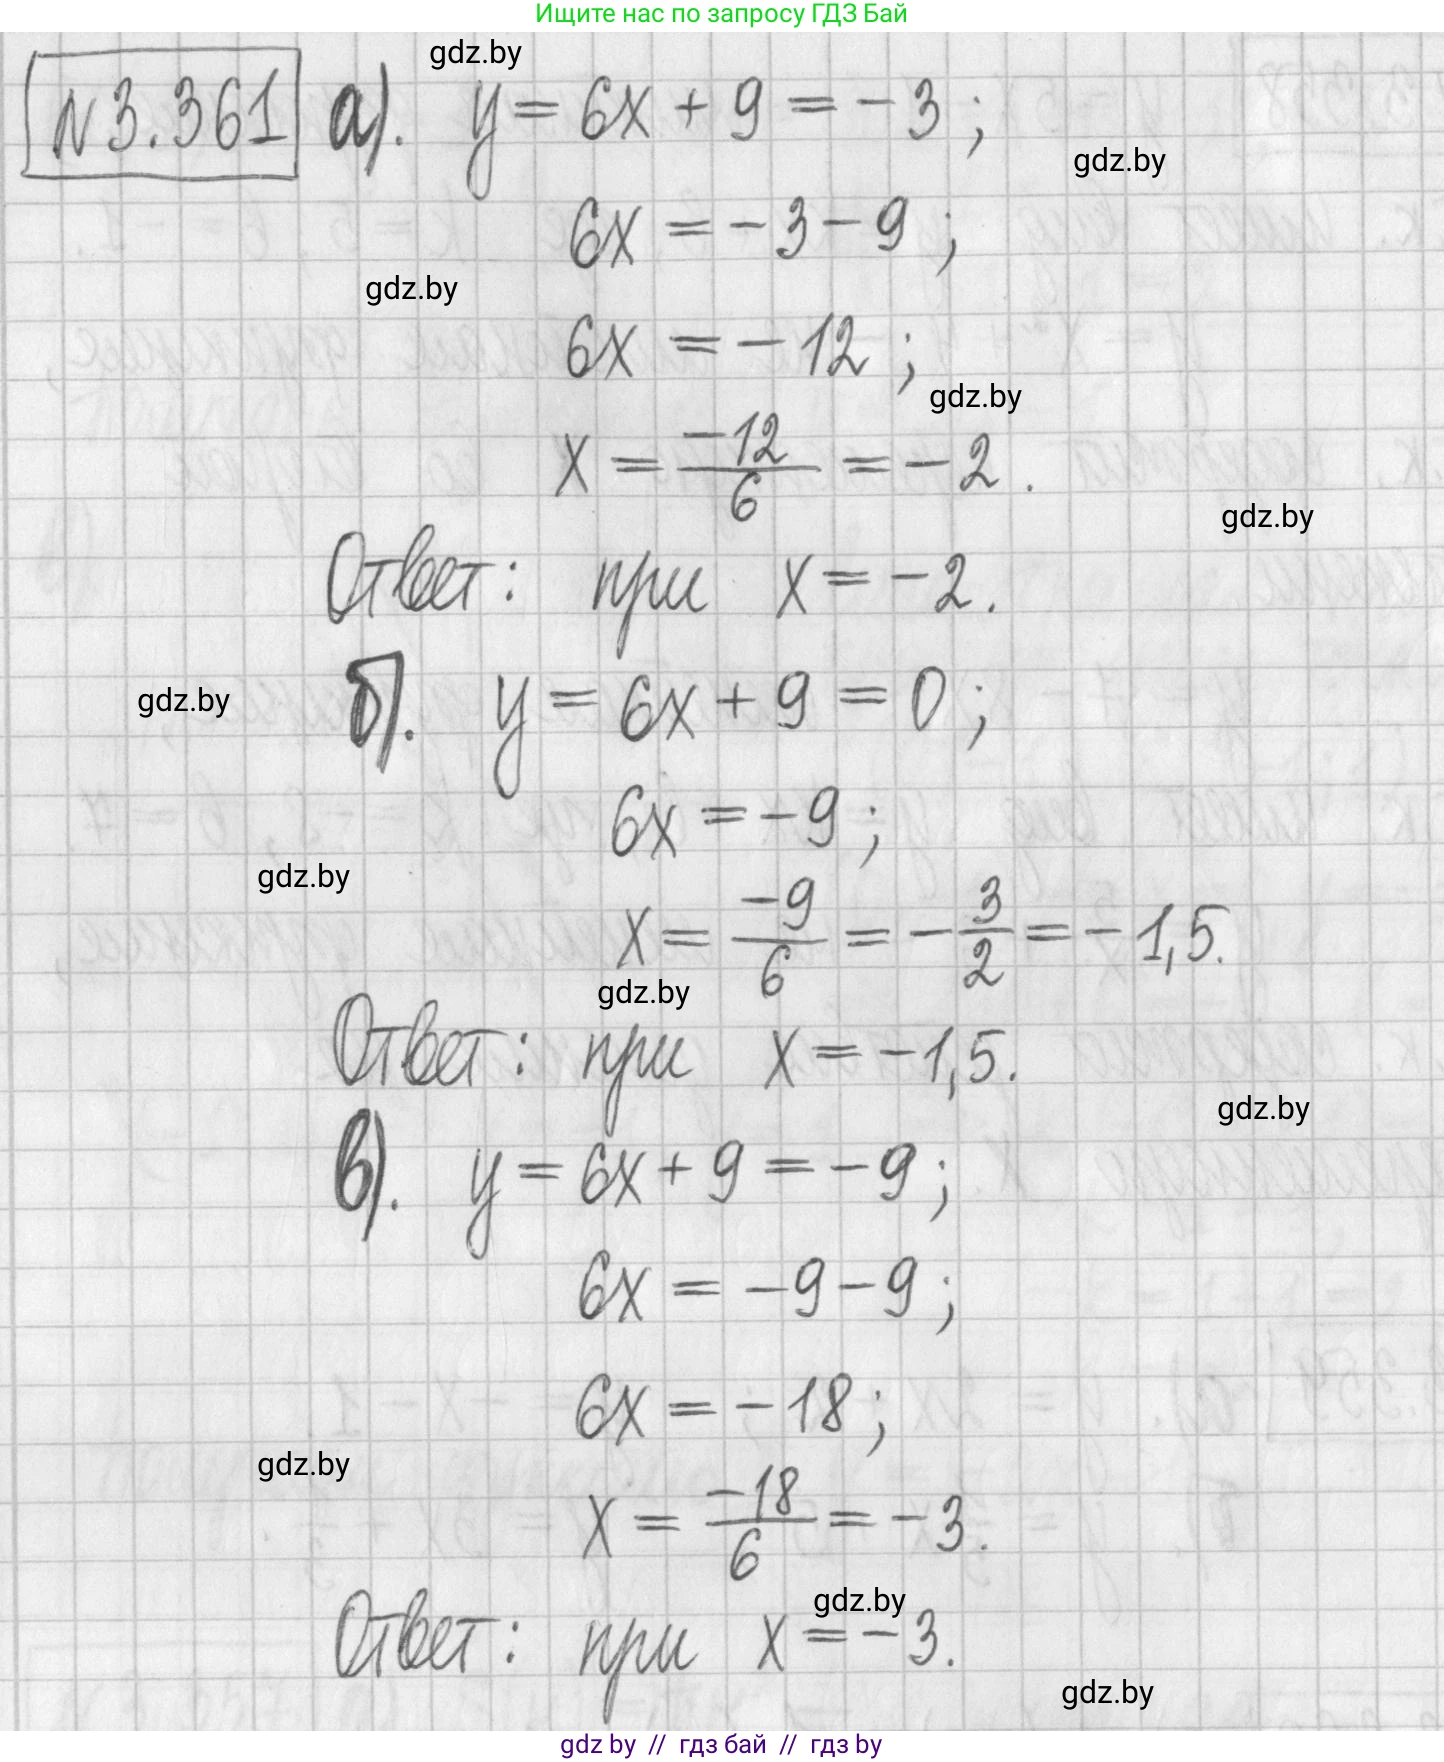 Ищите нас по запросу ГДЗ Бай
gdz.by
N3.361 а). y = 6x + 9 = -3 ;
gdz.by
6x = -3 - 9 ;
gdz.by
6x = -12 ;
gdz.by
x = -12/6 = -2 .
gdz.by
Ответ: при x = -2.
б). y = 6x + 9 = 0 ;
gdz.by
6x = -9 ;
gdz.by
x = -9/6 = -3/2 = -1,5.
gdz.by
Ответ: при x = -1,5.
gdz.by
в). y = 6x + 9 = -9 ;
6x = -9 - 9 ;
6x = -18 ;
gdz.by
x = -18/6 = -3.
gdz.by
Ответ: при x = -3.
gdz.by
gdz by // гдз бай // гдз by